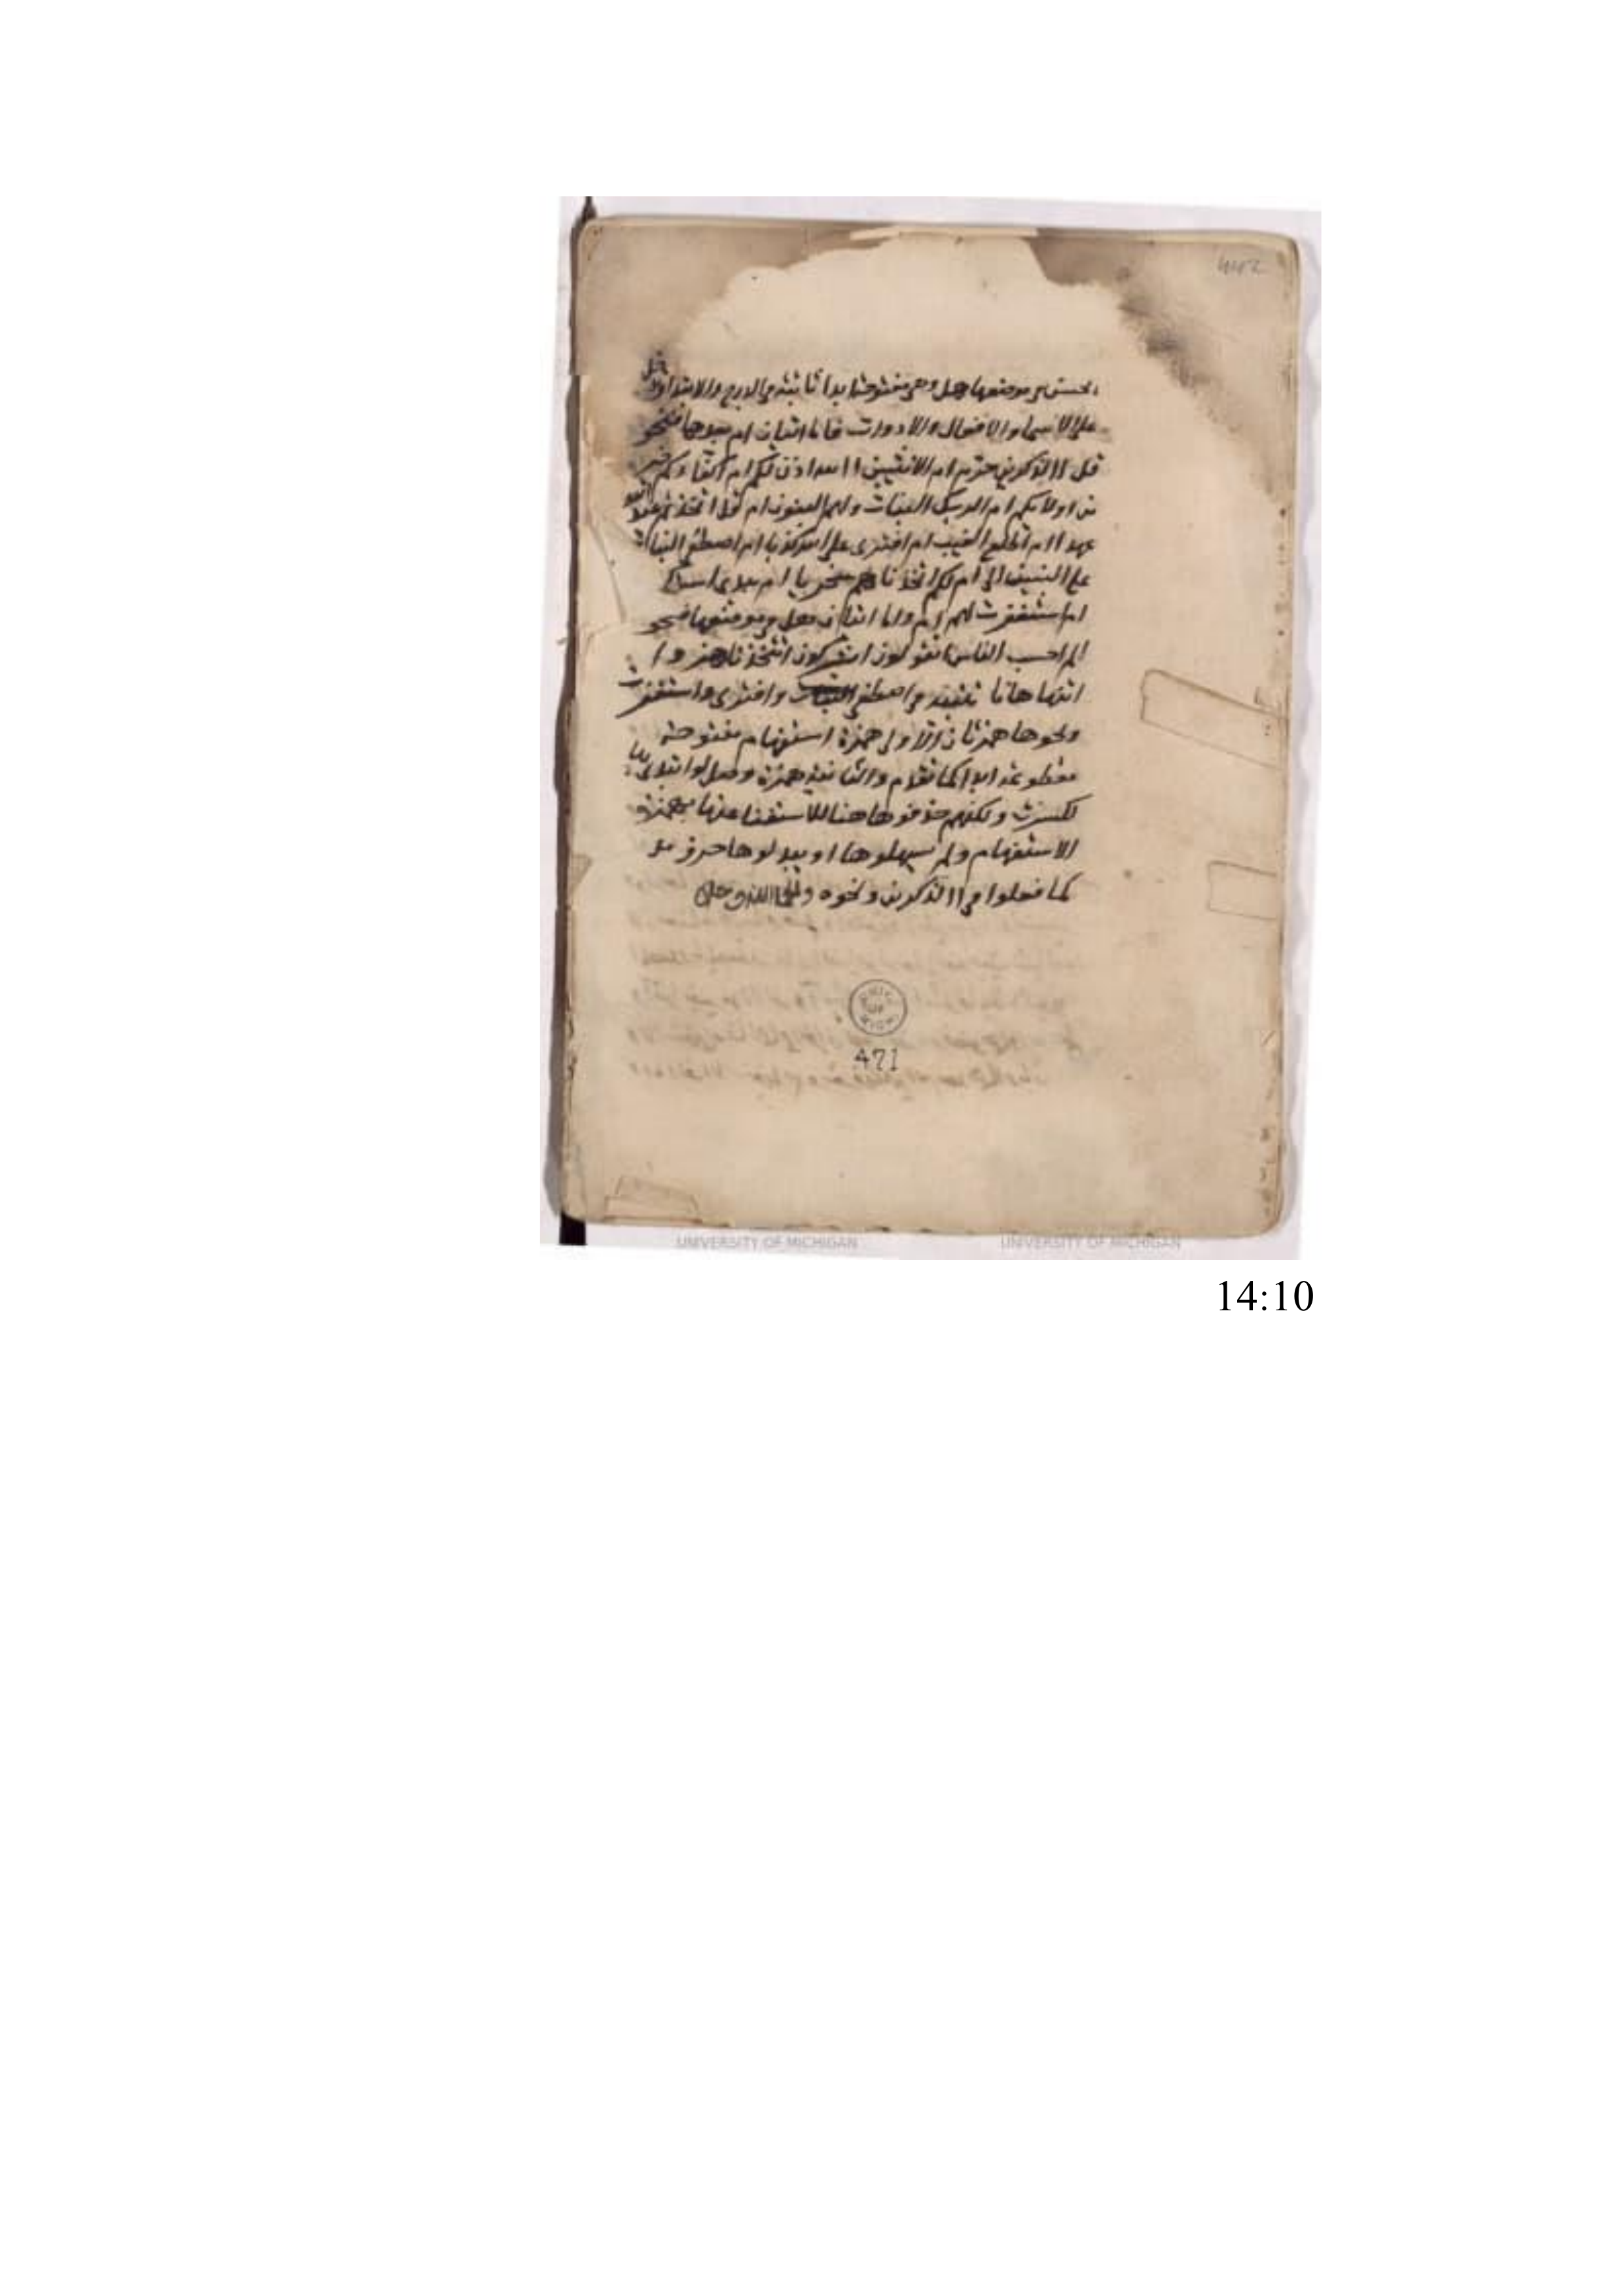 442
يحسن في موضعها هل وهي مفتوحة ابدا ثابتة في الدرج والابتداء وتدخل
على الاسماء والافعال والادوات فاما اتيان ام بعدها فنحو
قل االذكرين حرم ام الانثيين االله اذن لكم ام اكفاركم خير
من اولائكم ام الربك البنات ولهم البنون ام قل اتخذتم عند الله
عهدا ام اطلع الغيب ام افترى على الله كذبا ام اصطفى البنات
على البنين الى ام لكم اتخذناهم سخريا ام بيدي استكبر
ام استغفرت لهم ام واما اتيان هل في موضعها فنحو
الم احسب الناس اتقولون اتشركون اتتخذنا هزوا
ائتها هانا تنتقد في اصطفى وافترى واستغفرت
ونحوها همزتان الاولى همزة استفهام مفتوحة
مقطوعة ابدا كما تقدم والثانية همزة وصل لو ابتدى بها
لكسرت ولكنهم حذفوها هنا للاستغنا عنها بهمزة
الاستفهام ولم يسهلوها او يبدلوها حرف مد
كما فعلوا في االذكرين ونحوه
UNIV. OF MICH.
471
UNIVERSITY OF MICHIGAN UNIVERSITY OF MICHIGAN
14:10